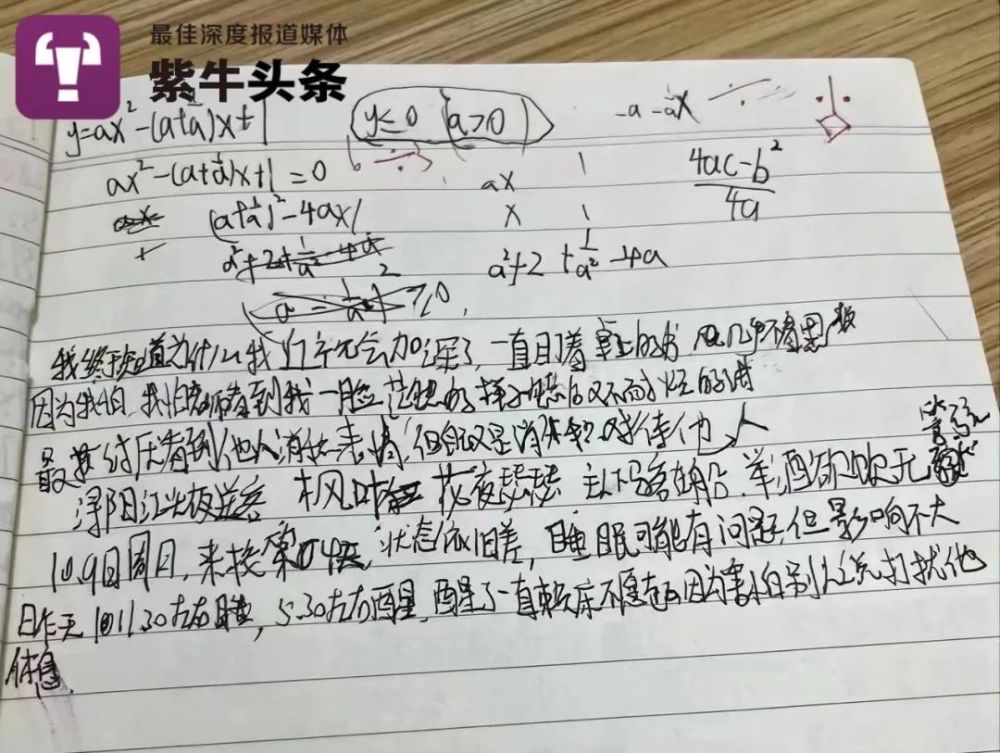 最佳深度报道媒体
紫牛头条
y=ax²-(a+1/a)x+1 y≤0 (a>0) -a-1/a x
ax²-(a+1/a)x+1=0 ax 1 4ac-b²/4a
(a+1/a)²-4ax1 x 1
a²+2+1/a²-4a a²+2+1/a²-4a
≥0
我终于知道为什么我 会加深了,一直盯着桌上的书
因为我怕,我怕老师看到我一脸茫然的样子
最讨厌看到他人消极表情,但自己又是消极 对待他人
浔阳江头夜送客 枫叶 荻花瑟瑟 主人下马客在船,举酒欲饮无管弦
10.9日周日,来校第04天,状态依旧差,睡眠可能有问题,但影响不大
昨天10 11:30左右睡,5:30左右醒,醒了一直 床不愿起因为害怕别人说打扰他
休息.